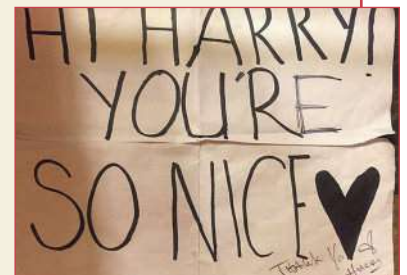 HI HARRY!
YOU'RE
SO NICE
Thank You